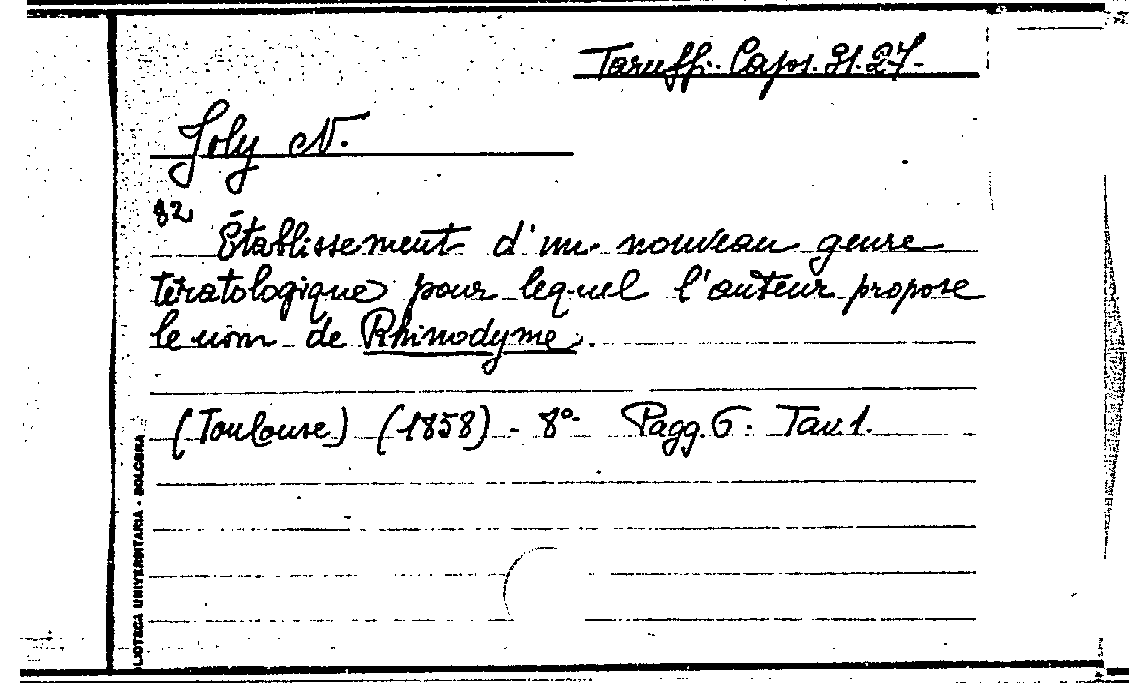 Taruffi. Caps. 91.27.
Joly N.
82
Établissement d'un nouveau genre
tératologique pour lequel l'auteur propose
le nom de Rhinodyme.
(Toulouse) (1858) - 8º. Pagg. 6. Tav. 1.
LIOTECA UNIVERSITARIA - BOLOGNA